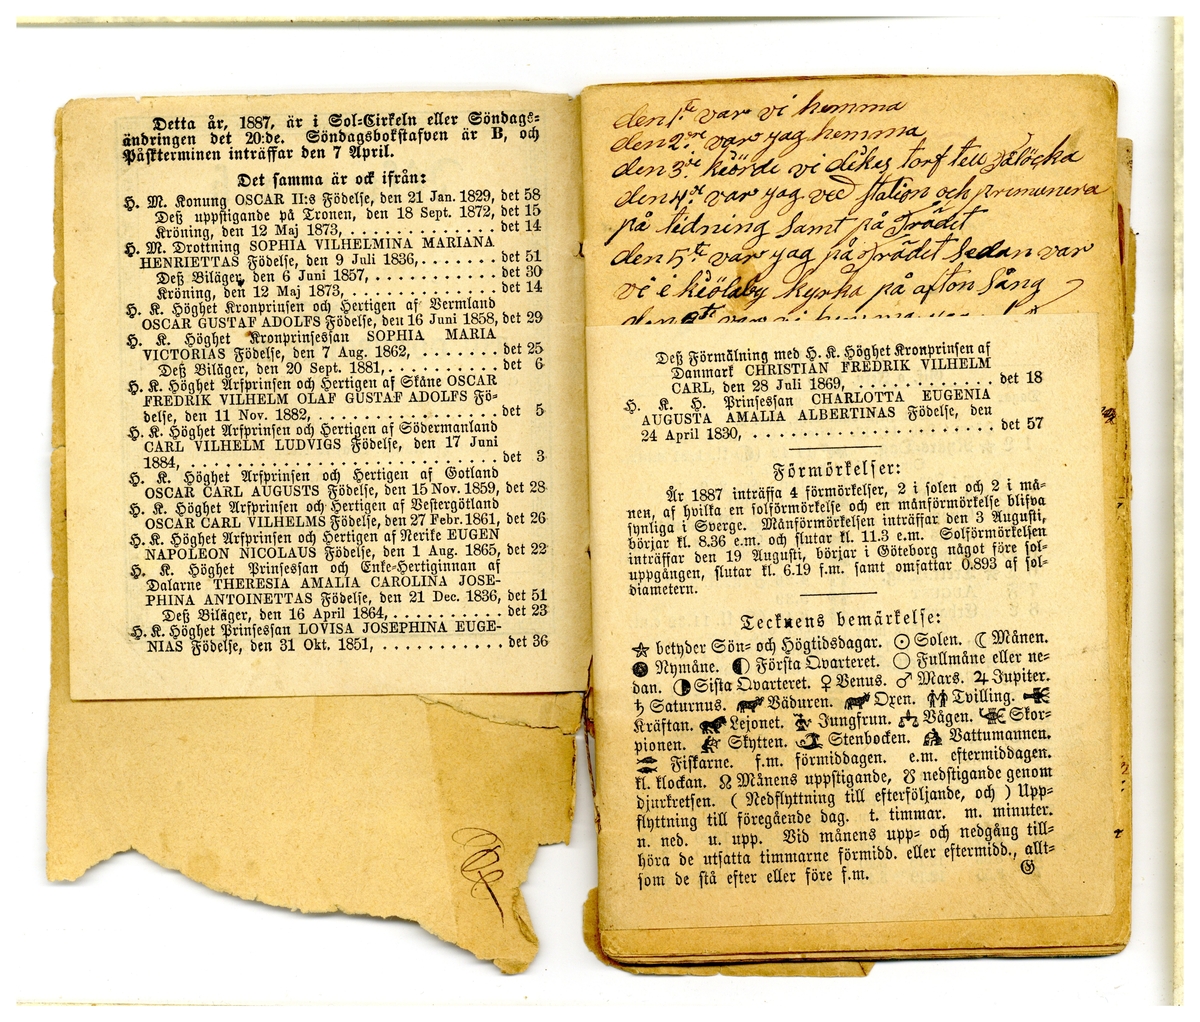 Detta år, 1887, är i Sol-Cirkeln eller Söndags-
ändringen det 20:de. Söndagsbokstafven är B, och
Påskterminen inträffar den 7 April.
Det samma är ock ifrån:
H. M. Konung OSCAR II:s Födelse, den 21 Jan. 1829, det 58
Deß uppstigande på Tronen, den 18 Sept. 1872, det 15
Kröning, den 12 Maj 1873, . . . . . . . . . . . . det 14
H. M. Drottning SOPHIA VILHELMINA MARIANA
HENRIETTAS Födelse, den 9 Juli 1836, . . . . . . . det 51
Deß Biläger, den 6 Juni 1857, . . . . . . . . . . . det 30
Kröning, den 12 Maj 1873, . . . . . . . . . . . . det 14
H. K. Höghet Kronprinsen och Hertigen af Vermland
OSCAR GUSTAF ADOLFS Födelse, den 16 Juni 1858, det 29
H. K. Höghet Kronprinsessan SOPHIA MARIA
VICTORIAS Födelse, den 7 Aug. 1862, . . . . . . . det 25
Deß Biläger, den 20 Sept. 1881, . . . . . . . . . . det 6
H. K. Höghet Arfprinsen och Hertigen af Skåne OSCAR
FREDRIK VILHELM OLAF GUSTAF ADOLFS Fö-
delse, den 11 Nov. 1882, . . . . . . . . . . . . . . det 5
H. K. Höghet Arfprinsen och Hertigen af Södermanland
CARL VILHELM LUDVIGS Födelse, den 17 Juni
1884, . . . . . . . . . . . . . . . . . . . . . . . . det 3
H. K. Höghet Arfprinsen och Hertigen af Gotland
OSCAR CARL AUGUSTS Födelse, den 15 Nov. 1859, det 28
H. K. Höghet Arfprinsen och Hertigen af Vestergötland
OSCAR CARL VILHELMS Födelse, den 27 Febr. 1861, det 26
H. K. Höghet Arfprinsen och Hertigen af Nerike EUGEN
NAPOLEON NICOLAUS Födelse, den 1 Aug. 1865, det 22
H. K. Höghet Prinsessan och Enke-Hertiginnan af
Dalarne THERESIA AMALIA CAROLINA JOSE-
PHINA ANTOINETTAS Födelse, den 21 Dec. 1836, det 51
Deß Biläger, den 16 April 1864, . . . . . . . . . . det 23
H. K. Höghet Prinsessan LOVISA JOSEPHINA EUGE-
NIAS Födelse, den 31 Okt. 1851, . . . . . . . . . . . det 36
den 1:te var vi hemma
den 2:re var jag hemma
den 3:ie kiörde vi dikes torf tell
den 4:de var jag ved station och premunera
på tidning samt på Trädet
den 5:te var jag på Trädet sedan var
vi i kiölaby kyrka på afton Sång
den 6:te var vi hemma
Deß Förmälning med H. K. Höghet Kronprinsen af
Danmark CHRISTIAN FREDRIK VILHELM
CARL, den 28 Juli 1869, . . . . . . . . . . . . . det 18
H. K. H. Prinsessan CHARLOTTA EUGENIA
AUGUSTA AMALIA ALBERTINAS Födelse, den
24 April 1830, . . . . . . . . . . . . . . . . . . . det 57
Förmörkelser:
År 1887 inträffa 4 förmörkelser, 2 i solen och 2 i må-
nen, af hvilka en solförmörkelse och en månförmörkelse blifva
synliga i Sverge. Månförmörkelsen inträffar den 3 Augusti,
börjar kl. 8.36 e.m. och slutar kl. 11.3 e.m. Solförmörkelsen
inträffar den 19 Augusti, börjar i Göteborg något före sol-
uppgången, slutar kl. 6.19 f.m. samt omfattar 0.893 af sol-
diametern.
Tecknens bemärkelse:
☆ betyder Sön- och Högtidsdagar. ☉ Solen. ☾ Månen.
● Nymåne. ◐ Första Qvarteret. ○ Fullmåne eller ne-
dan. ◑ Sista Qvarteret. ♀ Venus. ♂ Mars. ♃ Jupiter.
♄ Saturnus. Väduren. Oxen. Tvilling.
Kräftan. Lejonet. Jungfrun. Vågen. Skor-
pionen. Skytten. Stenbocken. Vattumannen.
Fiskarne. f.m. förmiddagen. e.m. eftermiddagen.
kl. klockan. ☊ Månens uppstigande, ☋ nedstigande genom
djurkretsen. ( Nedflyttning till efterföljande, och ) Upp-
flyttning till föregående dag. t. timmar. m. minuter.
n. ned. u. upp. Vid månens upp- och nedgång till-
höra de utsatta timmarne förmidd. eller eftermidd., allt-
som de stå efter eller före f.m.
G